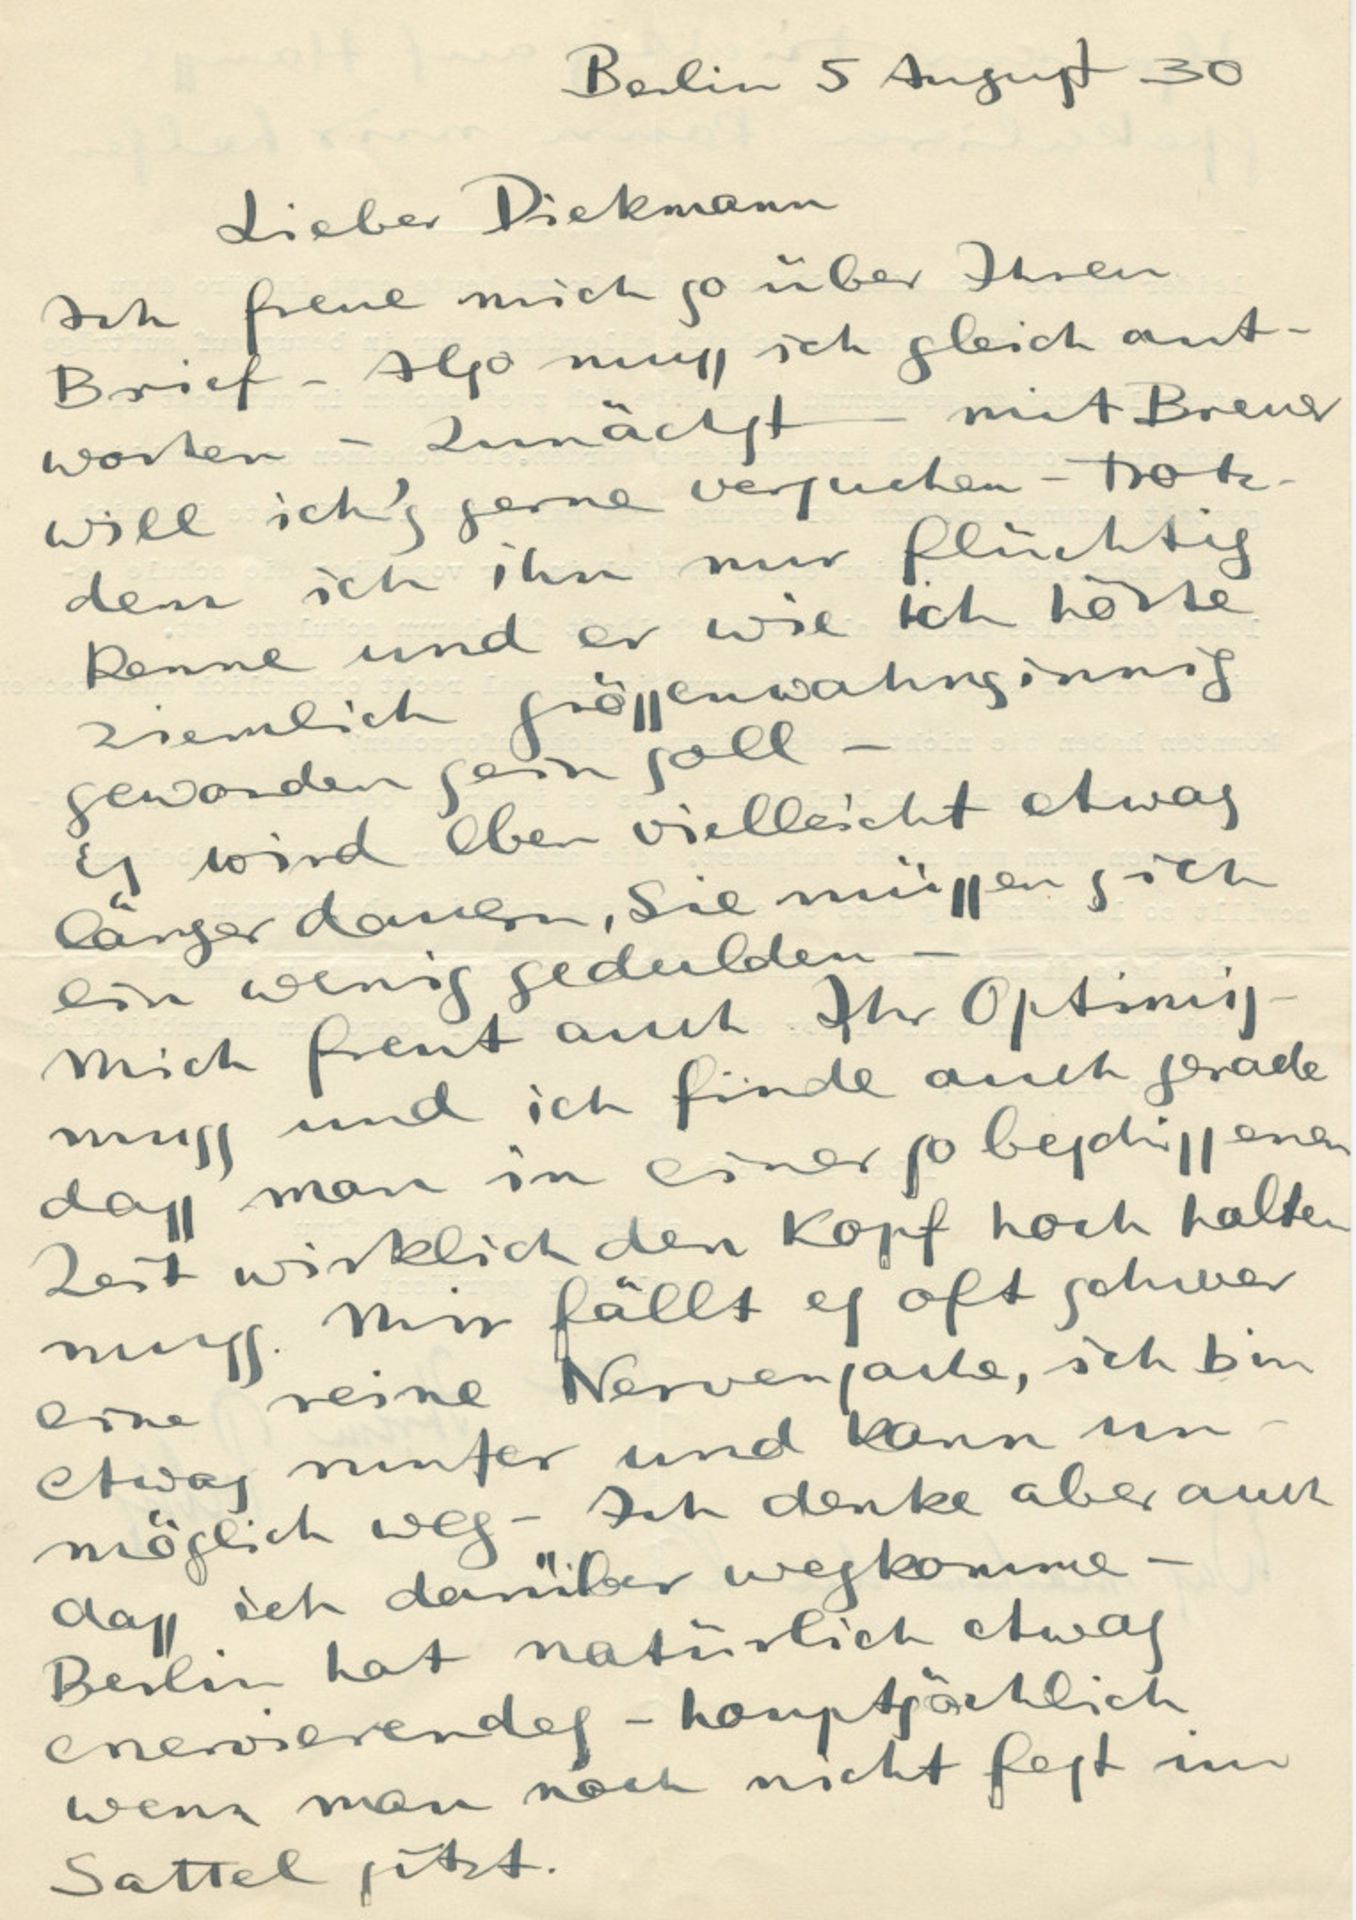 Berlin 5 August 30
Lieber Diekmann
Ich freue mich so über Ihren
Brief - Also muss ich gleich ant-
worten - Zunächst - mit Breuer
will ich's gerne versuchen - trotz-
dem ich ihn nur flüchtig
kenne und er wie ich hörte
ziemlich grössenwahnsinnig
geworden sein soll -
Es wird eben vielleicht etwas
länger dauern, Sie müssen sich
ein wenig gedulden -
Mich freut auch Ihr Optimis-
muss und ich finde auch gerade
dass man in einer so beschissenen
Zeit wirklich den Kopf hoch halten
muss. Mir fällt es oft schwer
eine reine Nervensache, ich bin
etwas runter und kann un-
möglich weg - Ich denke aber auch
dass ich darüber wegkomme -
Berlin hat natürlich etwas
enervierendes - hauptsächlich
wenn man noch nicht fest im
Sattel sitzt.